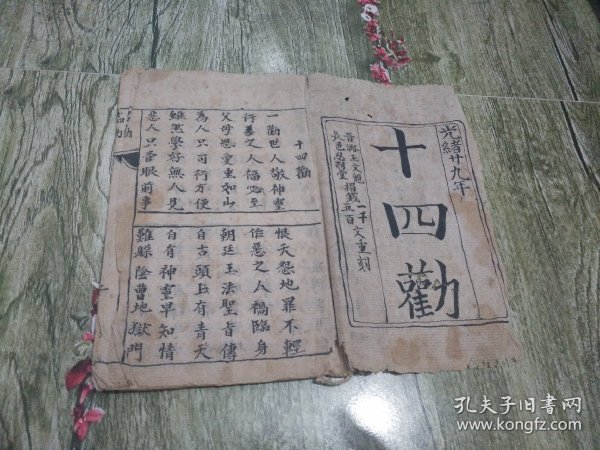 光緒廿九年
十四勸
捐錢
一千
五百
文重刻
十四勸
一勸世人敬神靈 恨天怨地罪不輕
行善之人福必至 作惡之人禍臨身
父母恩愛重如山 朝廷王法聖旨傳
為人只可行方便 自古頭上有青天
雖然學好無人見 自有神靈早知情
惡人只當眼前事 難躲陰曹地獄門
孔夫子旧书网
www.kongfz.com